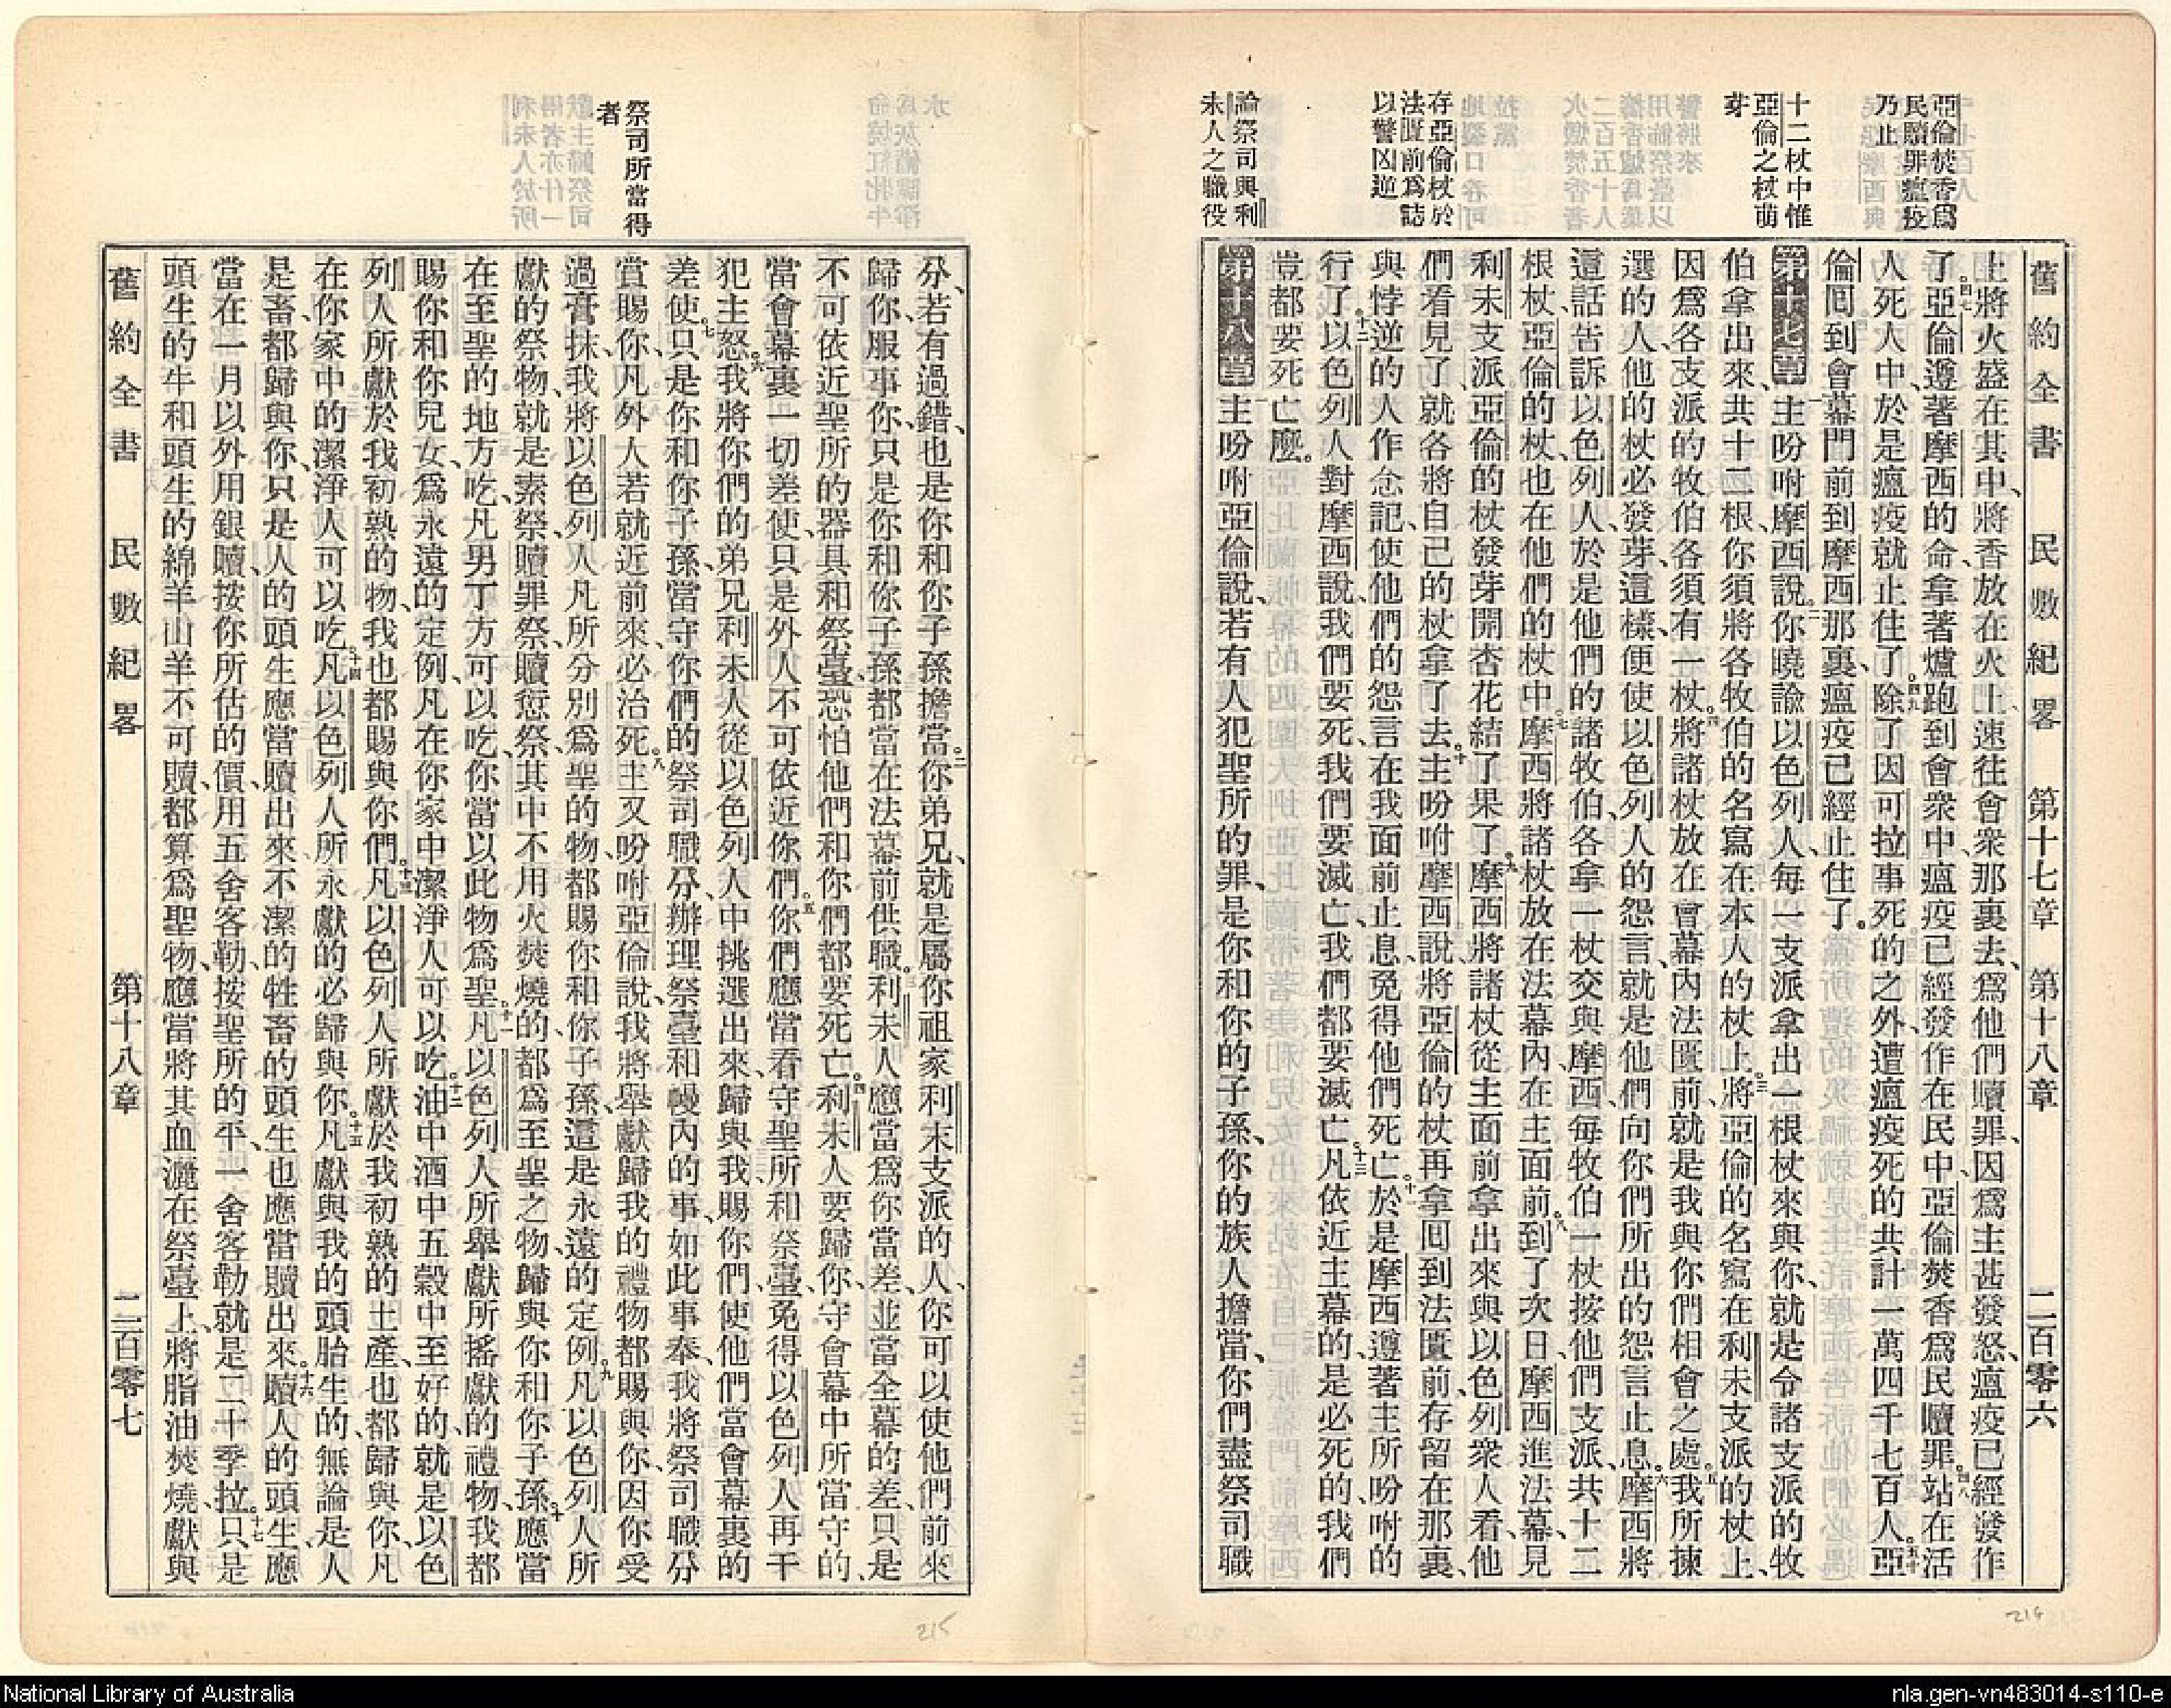 舊約全書　民數紀畧　第十七章　第十八章　二百零六
亞倫焚香爲
民贖罪瘟疫
乃止
十二杖中惟
亞倫之杖萌
芽
存亞倫杖於
法匱前爲誌
以警凶逆
論祭司與利
未人之職役
上將火盛在其中、將香放在火上、速往會衆那裏去、爲他們贖罪、因爲主甚發怒、瘟疫已經發作
了。四七亞倫遵著摩西的命、拿著爐跑到會衆中、瘟疫已經發作在民中、亞倫焚香爲民贖罪。四八站在活
人死人中、於是瘟疫就止住了。四九除了因可拉事死的之外、遭瘟疫死的共計一萬四千七百人。五十亞
倫囘到會幕門前、到摩西那裏、瘟疫已經止住了。
第十七章一主吩咐摩西說。二你曉諭以色列人、每一支派拿出一根杖來與你、就是令諸支派的牧
伯拿出來、共十二根、你須將各牧伯的名寫在本人的杖上。三將亞倫的名寫在利未支派的杖上、
因爲各支派的牧伯各須有一杖。四將諸杖放在會幕內法匱前、就是我與你們相會之處。五我所揀
選的人、他的杖必發芽、這樣便使以色列人的怨言、就是他們向你們所出的怨言止息。六摩西將
這話告訴以色列人、於是他們的諸牧伯各拿一杖交與摩西、每牧伯一杖、按他們支派共十二
根杖、亞倫的杖、也在他們的杖中。七摩西將諸杖放在法幕內、在主面前。八到了次日、摩西進法幕、見
利未支派、亞倫的杖發芽開杏花、結了果了。九摩西將諸杖從主面前拿出來、與以色列衆人看、他
們看見了、就各將自己的杖拿了去。十主吩咐摩西說、將亞倫的杖再拿囘到法匱前、存留在那裏、
與悖逆的人作念記、使他們的怨言在我面前止息、免得他們死亡。十一於是摩西遵著主所吩咐的
行了。十二以色列人對摩西說、我們要死、我們要滅亡、我們都要滅亡。十三凡依近主幕的、是必死的、我們
豈都要死亡麼。
第十八章一主吩咐亞倫說、若有人犯聖所的罪、是你和你的子孫、你的族人擔當、你們盡祭司職
214
祭司所當得
者
分、若有過錯、也是你和你子孫擔當。二你弟兄、就是屬你祖家利未支派的人、你可以使他們前來
歸你、服事你、只是你和你子孫都當在法幕前供職。三利未人應當爲你當差、並當全幕的差、只是
不可依近聖所的器具和祭臺、恐怕他們和你們都要死亡。四利未人要歸你、守會幕中所當守的、
當會幕裏一切差使、只是外人不可依近你們。五你們應當看守聖所和祭臺、免得以色列人再干
犯主怒。六我將你們的弟兄利未人、從以色列人中挑選出來、歸與我、賜你們、使他們當會幕裏的
差使。七只是你和你子孫、當守你們的祭司職分、辦理祭臺和幔內的事、如此事奉、我將祭司職分
賞賜你、凡外人若就近前來、必治死。八主又吩咐亞倫說、我將舉獻歸我的禮物都賜與你、因你受
過膏抹、我將以色列人凡所分別爲聖的物、都賜你和你子孫、這是永遠的定例。九凡以色列人所
獻的祭物、就是素祭、贖罪祭、贖愆祭、其中不用火焚燒的、都爲至聖之物、歸與你和你子孫。十應當
在至聖的地方吃、凡男丁方可以吃、你當以此物爲聖。十一凡以色列人所舉獻所搖獻的禮物、我都
賜你和你兒女、爲永遠的定例、凡在你家中潔淨人可以吃。十二油中酒中五穀中至好的、就是以色
列人所獻於我初熟的物、我也都賜與你們。十三凡以色列人所獻於我初熟的土產、也都歸與你、凡
在你家中的潔淨人可以吃。十四凡以色列人所永獻的必歸與你。十五凡獻與我的頭胎生的、無論是人
是畜、都歸與你、只是人的頭生、應當贖出來、不潔的牲畜的頭生也應當贖出來。十六贖人的頭生、應
當在一月以外用銀贖、按你所估的價、用五舍客勒、按聖所的平、一舍客勒就是二十季拉。十七只是
頭生的牛和頭生的綿羊山羊不可贖、都算爲聖物、應當將其血灑在祭臺上、將脂油焚燒、獻與
舊約全書　民數紀畧　第十八章　二百零七
215
National Library of Australia
nla.gen-vn483014-s110-e